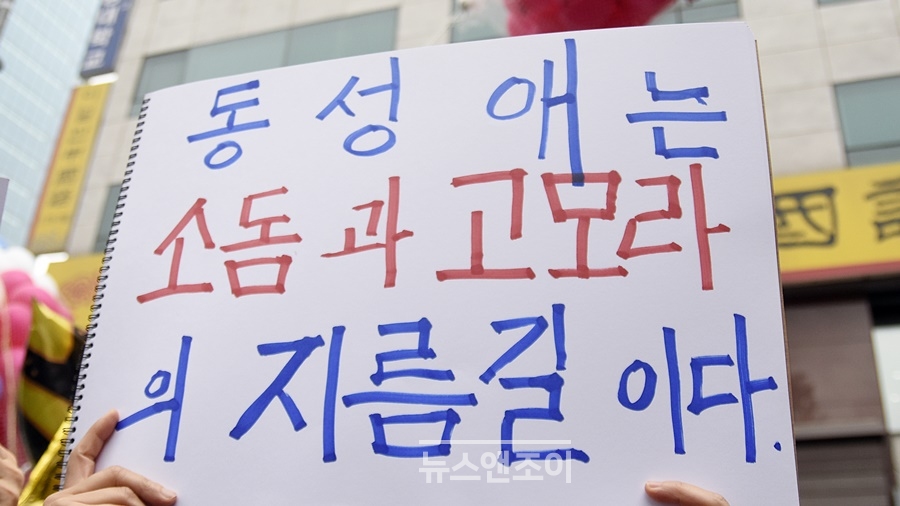 동성애는
소돔과 고모라
의 지름길이다.
뉴스앤조이